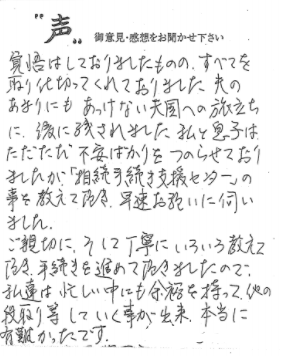 "声"
御意見・感想をお聞かせ下さい
覚悟はしておりましたものの、すべてを
取り仕切ってくれておりました 夫の
あまりにも あっけない天国への旅立ち
に、後に残されました 私と息子は
ただただ 不安ばかりを つのらせており
ましたが「相続手続き支援センター」の
事を教えて頂き、早速お願いに伺い
ました。
ご親切に、そして丁寧にいろいろ教えて
頂き、手続きを進めて頂きましたので、
私達は 忙しい中にも 余裕を持って、他の
段取り等していく事が出来、本当に
有難かったです。